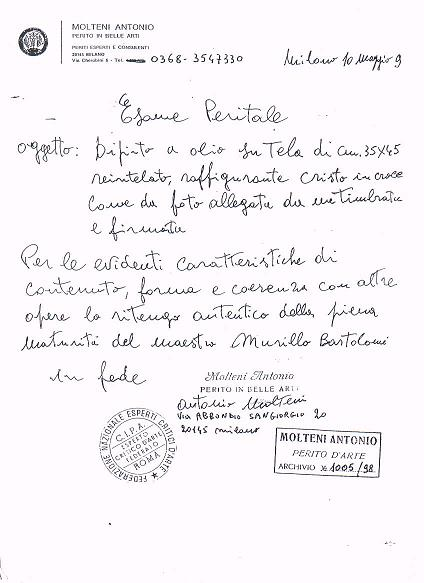 MOLTENI ANTONIO
PERITO IN BELLE ARTI
PERITI ESPERTI E CONSULENTI
20145 MILANO
Via Cherubini 6 - Tel. 0368-3547330
Milano 10 Maggio 9
Esame Peritale
Oggetto: Dipinto a olio su Tela di cm. 35x45
reintelato, raffigurante Cristo in croce
come da foto allegata da me timbrata
e firmata
Per le evidenti caratteristiche di
contenuto, forma e coerenza con altre
opere lo ritengo autentico della piena
maturità del maestro Murillo Bartolomé
In fede
Molteni Antonio
PERITO IN BELLE ARTI
Antonio Molteni
VIA ABBONDIO SANGIORGIO 20
20145 Milano
FEDERAZIONE NAZIONALE ESPERTI CRITICI D'ARTE
C.I.P.A.
ESPERTO
CRITICO D'ARTE
FEDERATO
ROMA
MOLTENI ANTONIO
PERITO D'ARTE
ARCHIVIO № 1005/98